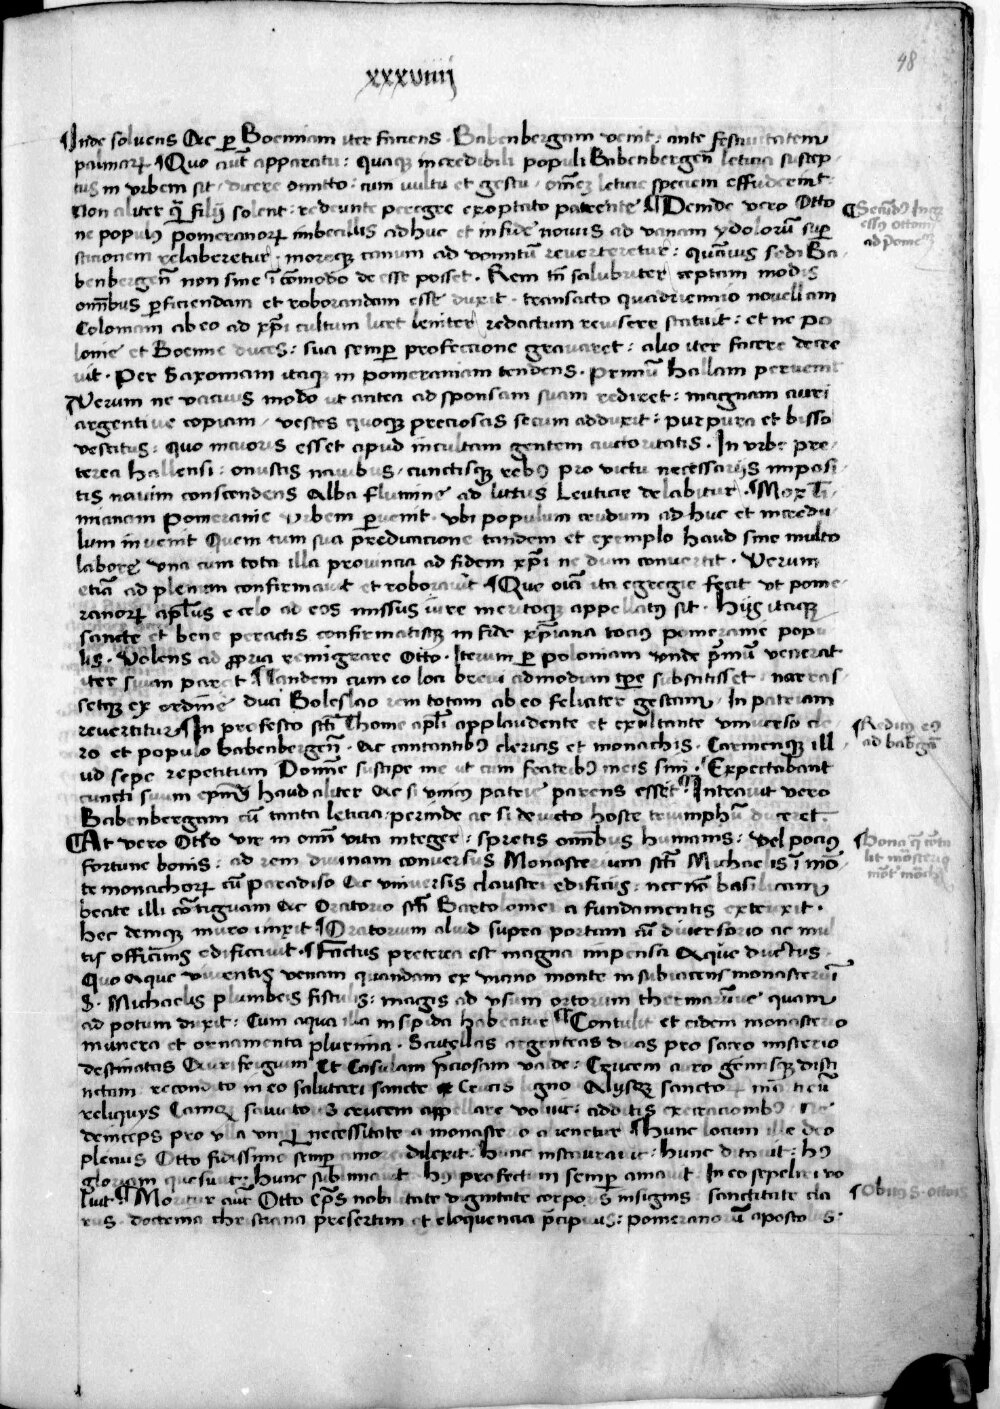 xxxviiij
48
Inde soluens Ac ꝑ Boemiam iter faciens · Babenbergam venit : ante festiuitatem
palmaꝝ ¶ Quo aūt apparatu : quaqꝫ incredibili populi Babenbergeñ leticia suscep
tus in vrbem sit · dicere omitto : cum uultu et gestu · om̄eꝫ leticie speciem effuderint
Non aliter q̄ȝ filij solent : redeunte peregre exoptato parente ¶ Deinde vero Otto
ne populꝰ pomeranoꝝ imbecillis ad huc et in fide nouus ad vanam ydoloruȝ suꝑ
sticionem relaberetur · moreqꝫ canum ad vomituȝ reuerteretur : quāuis sedi Ba-
benbergeñ non sine ī cōmodo de esse posset · Rem tñ salubriter ceptam modis
omībus ꝑficiendam et roborandam esse duxit · transacto quadriennio nouellam
Coloniam ab eo ad xp̄i cultum licet leniter redactum reuisere statuit : et ne po
lonie et Boemie duces : sua semꝑ profectione grauaret : alio iter facere decre
uit · Per Saxoniam itaqꝫ in pomeraniam tendens · Primuȝ hallam peruenit
Verum ne vacuus modo ut antea ad sponsam suam rediret : magnam auri
argentiue copiam · vestes quoqꝫ preciosas secum adduxit : purpura et bisso
vestitus : quo maioris esset apud incultam gentem auctoritatis · In vrbe pre-
terea hallensi : onustis nauibus · cunctisqꝫ rebꝰ pro victu necessarijs imposi-
tis nauim conscendens Alba flumine ad littus Leuticie delabitur · ¶ Mox Ti-
mianam pomeranie vrbem ꝑuenit · vbi populum crudum ad huc et incredu-
lum inuenit Quem tum sua predicacione tandem et exemplo haud sine multo
labore vna cum tota illa prouincia ad fidem xp̄i ne dum conuertit · Verum
etiā ad plenum confirmauit et roborauit ¶ Que oīa ita egregie fecit ut pome-
ranoꝝ apl̄us e celo ad eos missus iure meritoqꝫ appellatꝰ sit · Hijs itaqꝫ
sancte et bene peractis confirmatisqꝫ in fide xp̄iana tociꝰ pomeranie popu
lis · Volens ad ꝓpria remigrare Otto · Iterum ꝑ poloniam vnde p̄muȝ venerat
iter suum parat ¶ Tandem cum eo loci breui admodum tp̄e substitisset · narras-
setqꝫ ex ordine duci Boleslao rem totam ab eo feliciter gestam · In patriam
reuertitur ¶ In profesto sc̄ti Thome apl̄i applaudente et exultante vniuerso cle
ro et populo babenbergeñ · Ac cantantibꝰ clericis et monachis · Carmenqꝫ ill
ud sepe repetitum Domine suscipe me ut cum fratribꝰ meis sim · Expectabant
cuncti suum ep̄um haud aliter Ac si vnicꝰ patrie parens esset ¶ Intrauit vero
Babenbergam cū tanta leticia : perinde ac si deuicto hoste triumphū duceret
¶ At vero Otto vir in omni vita integer : spretis omībus humanis : vel pociꝰ
fortune bonis : ad rem diuinam conuersus Monasterium sc̄ti Michaelis ī mō-
te monachoꝝ cū paradiso Ac vniuersis claustri edificijs : nec nō basilicam
beate illi cōtiguam Ac Oratorio sc̄ti Bartolomei a fundamentis extruxit ·
hec denique muro cinxit ¶ Oratorium aliud supra portam cū diuersorio ac mul
tis officinis edificauit · ¶ Factus preterea est magna impensa Aque ductus
Quo aque viuentis venam quandam ex vicino monte in subiacens monasteriū
S · Michaelis plumbeis fistulis : magis ad vsum ortorum thermarumue quam
ad potum duxit : Cum aqua illa insipida habeatur ¶ Contulit et eidem monasterio
munera et ornamenta plurima · Scutellas argenteas duas pro sacro misterio
destinatas Aurifrigium Et Casulam p̄ciosam valde : Crucem auro gemisqꝫ disti
nctam recondito in eo salutari sancte Crucis ligno Alijsqꝫ sanctoꝝ
reliquijs Eamqꝫ saluatoris crucem appellare voluit : additis execracionibꝰ ne
deinceps pro vlla vnquam necessitate a monasterio alienetur ¶ Hunc locum ille deo
plenus Otto fidissime semꝑ amore dilexit : Hunc instaurauit : Hunc ditauit : hꝰ
gloriam quesiuit : Hunc sublimauit hꝰ profectum semꝑ amauit In eo sepeliri vo
luit ¶ Moritur aūt Otto ep̄us nobilitate dignitate corporis insignis sanctitate cla
rus · doctrina christiana presertim et eloquencia p̄cipuus : pomeranoruȝ apostolus :
¶ Secūdꝰ Ing
essꝰ Ottonis
ad pome
¶ Reditꝰ eiꝰ
ad babēgā
¶ Bona q̄ cōtu
lit mōsterio
mōt mōch
¶ Obitꝰ S · ottonis